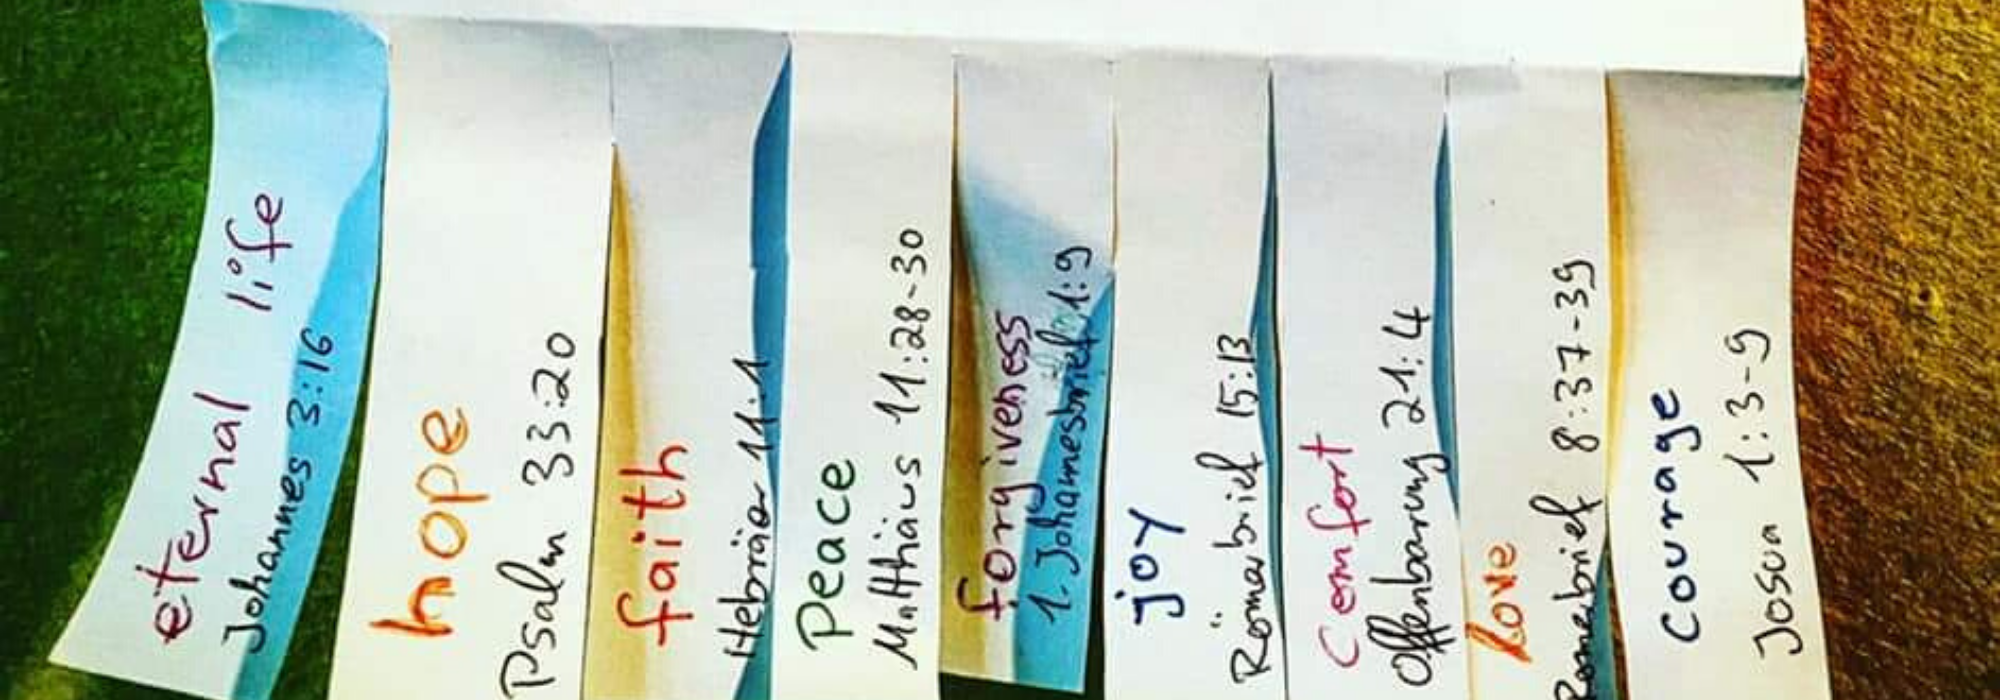 eternal life
Johannes 3:16
hope
Psalm 33:20
faith
Hebräer 11:1
Peace
Matthäus 11:28-30
forgiveness
1. Johannesbrief 1:9
joy
Römerbrief 15:13
Comfort
Offenbarung 21:4
love
Römerbrief 8:37-39
courage
Josua 1:3-9